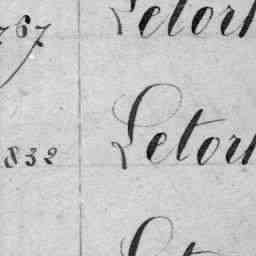 767 Letort
832 Letort